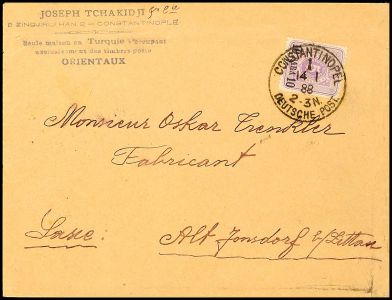 JOSEPH TCHAKIDJI
CONSTANTINOPLE
Seule maison en Turquie s'occupant
exclusivement des timbres poste
ORIENTAUX
CONSTANTINOPEL
1
14 1
88
2-3N.
DEUTSCHE POST
Monsieur Oskar Trenkler
Fabricant
Saxe:
Alt Jonsdorf b/Zittau